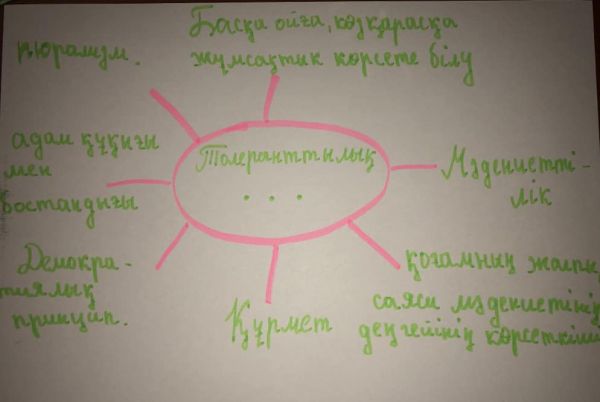 Басқа ойға, көзқарасқа
жұмсақтық көрсете білу
плюрализм.
адам құқығы
мен
бостандығы
Толеранттылық
...
Мәдениетті-
лік
Демокра-
тиялық
принцип.
Құрмет
қоғамның жалпы
саяси мәдениетінің
деңгейінің көрсеткіші